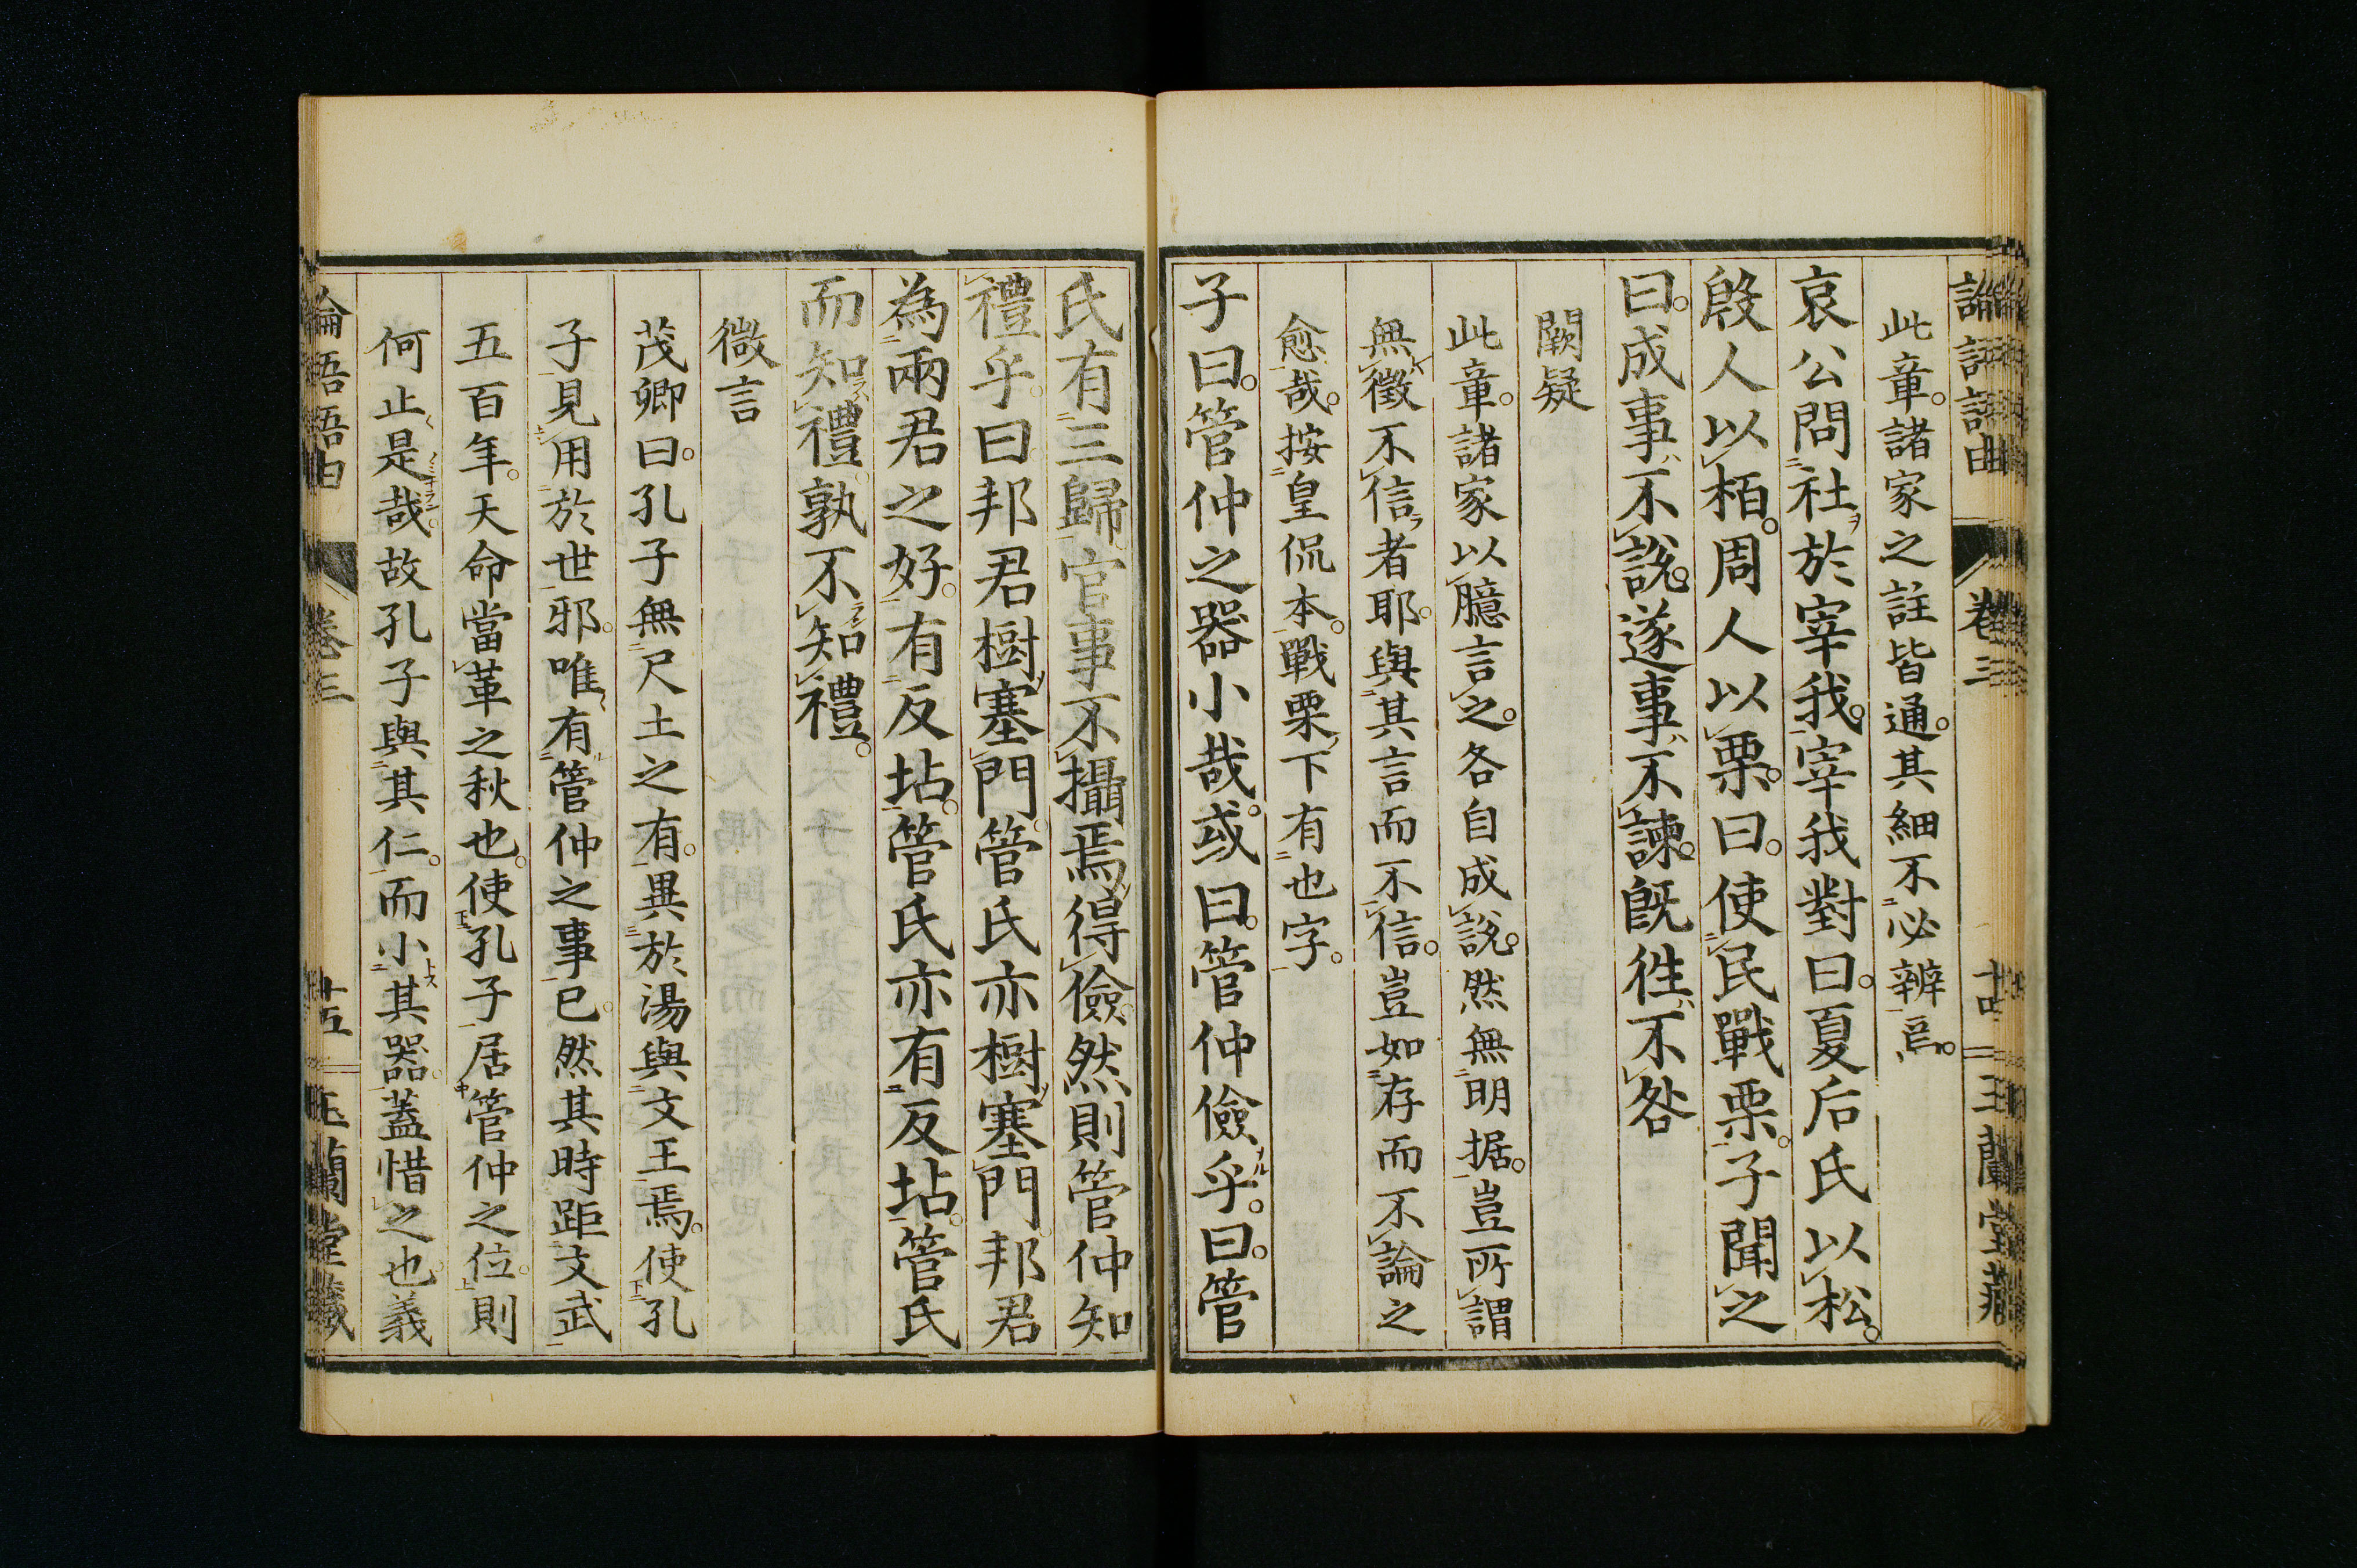 論語語由 卷三 十四 玉蘭堂藏
此章。諸家之註皆通。其細不必辨焉。
哀公問社於宰我。宰我對曰。夏后氏以松。
殷人以栢。周人以栗。曰。使民戰栗。子聞之
曰。成事不說。遂事不諫。既往不咎
闕疑
此章。諸家以臆言之。各自成說。然無明據。豈所謂
無徵不信者耶。與其言而不信。豈如存而不論之
愈哉。按皇侃本。戰栗下有也字。
子曰。管仲之器小哉。或曰。管仲儉乎。曰。管
氏有三歸。官事不攝。焉得儉。然則管仲知
禮乎。曰。邦君樹塞門。管氏亦樹塞門。邦君
為兩君之好。有反坫。管氏亦有反坫。管氏
而知禮。孰不知禮。
微言
茂卿曰。孔子無尺土之有。異於湯與文王焉。使孔
子見用於世邪。唯有管仲之事已。然其時距文武
五百年。天命當革之秋也。使孔子居管仲之位。則
何止是哉。故孔子與其仁。而小其器。蓋惜之也。義
論語語由 卷三 十五 玉蘭堂藏